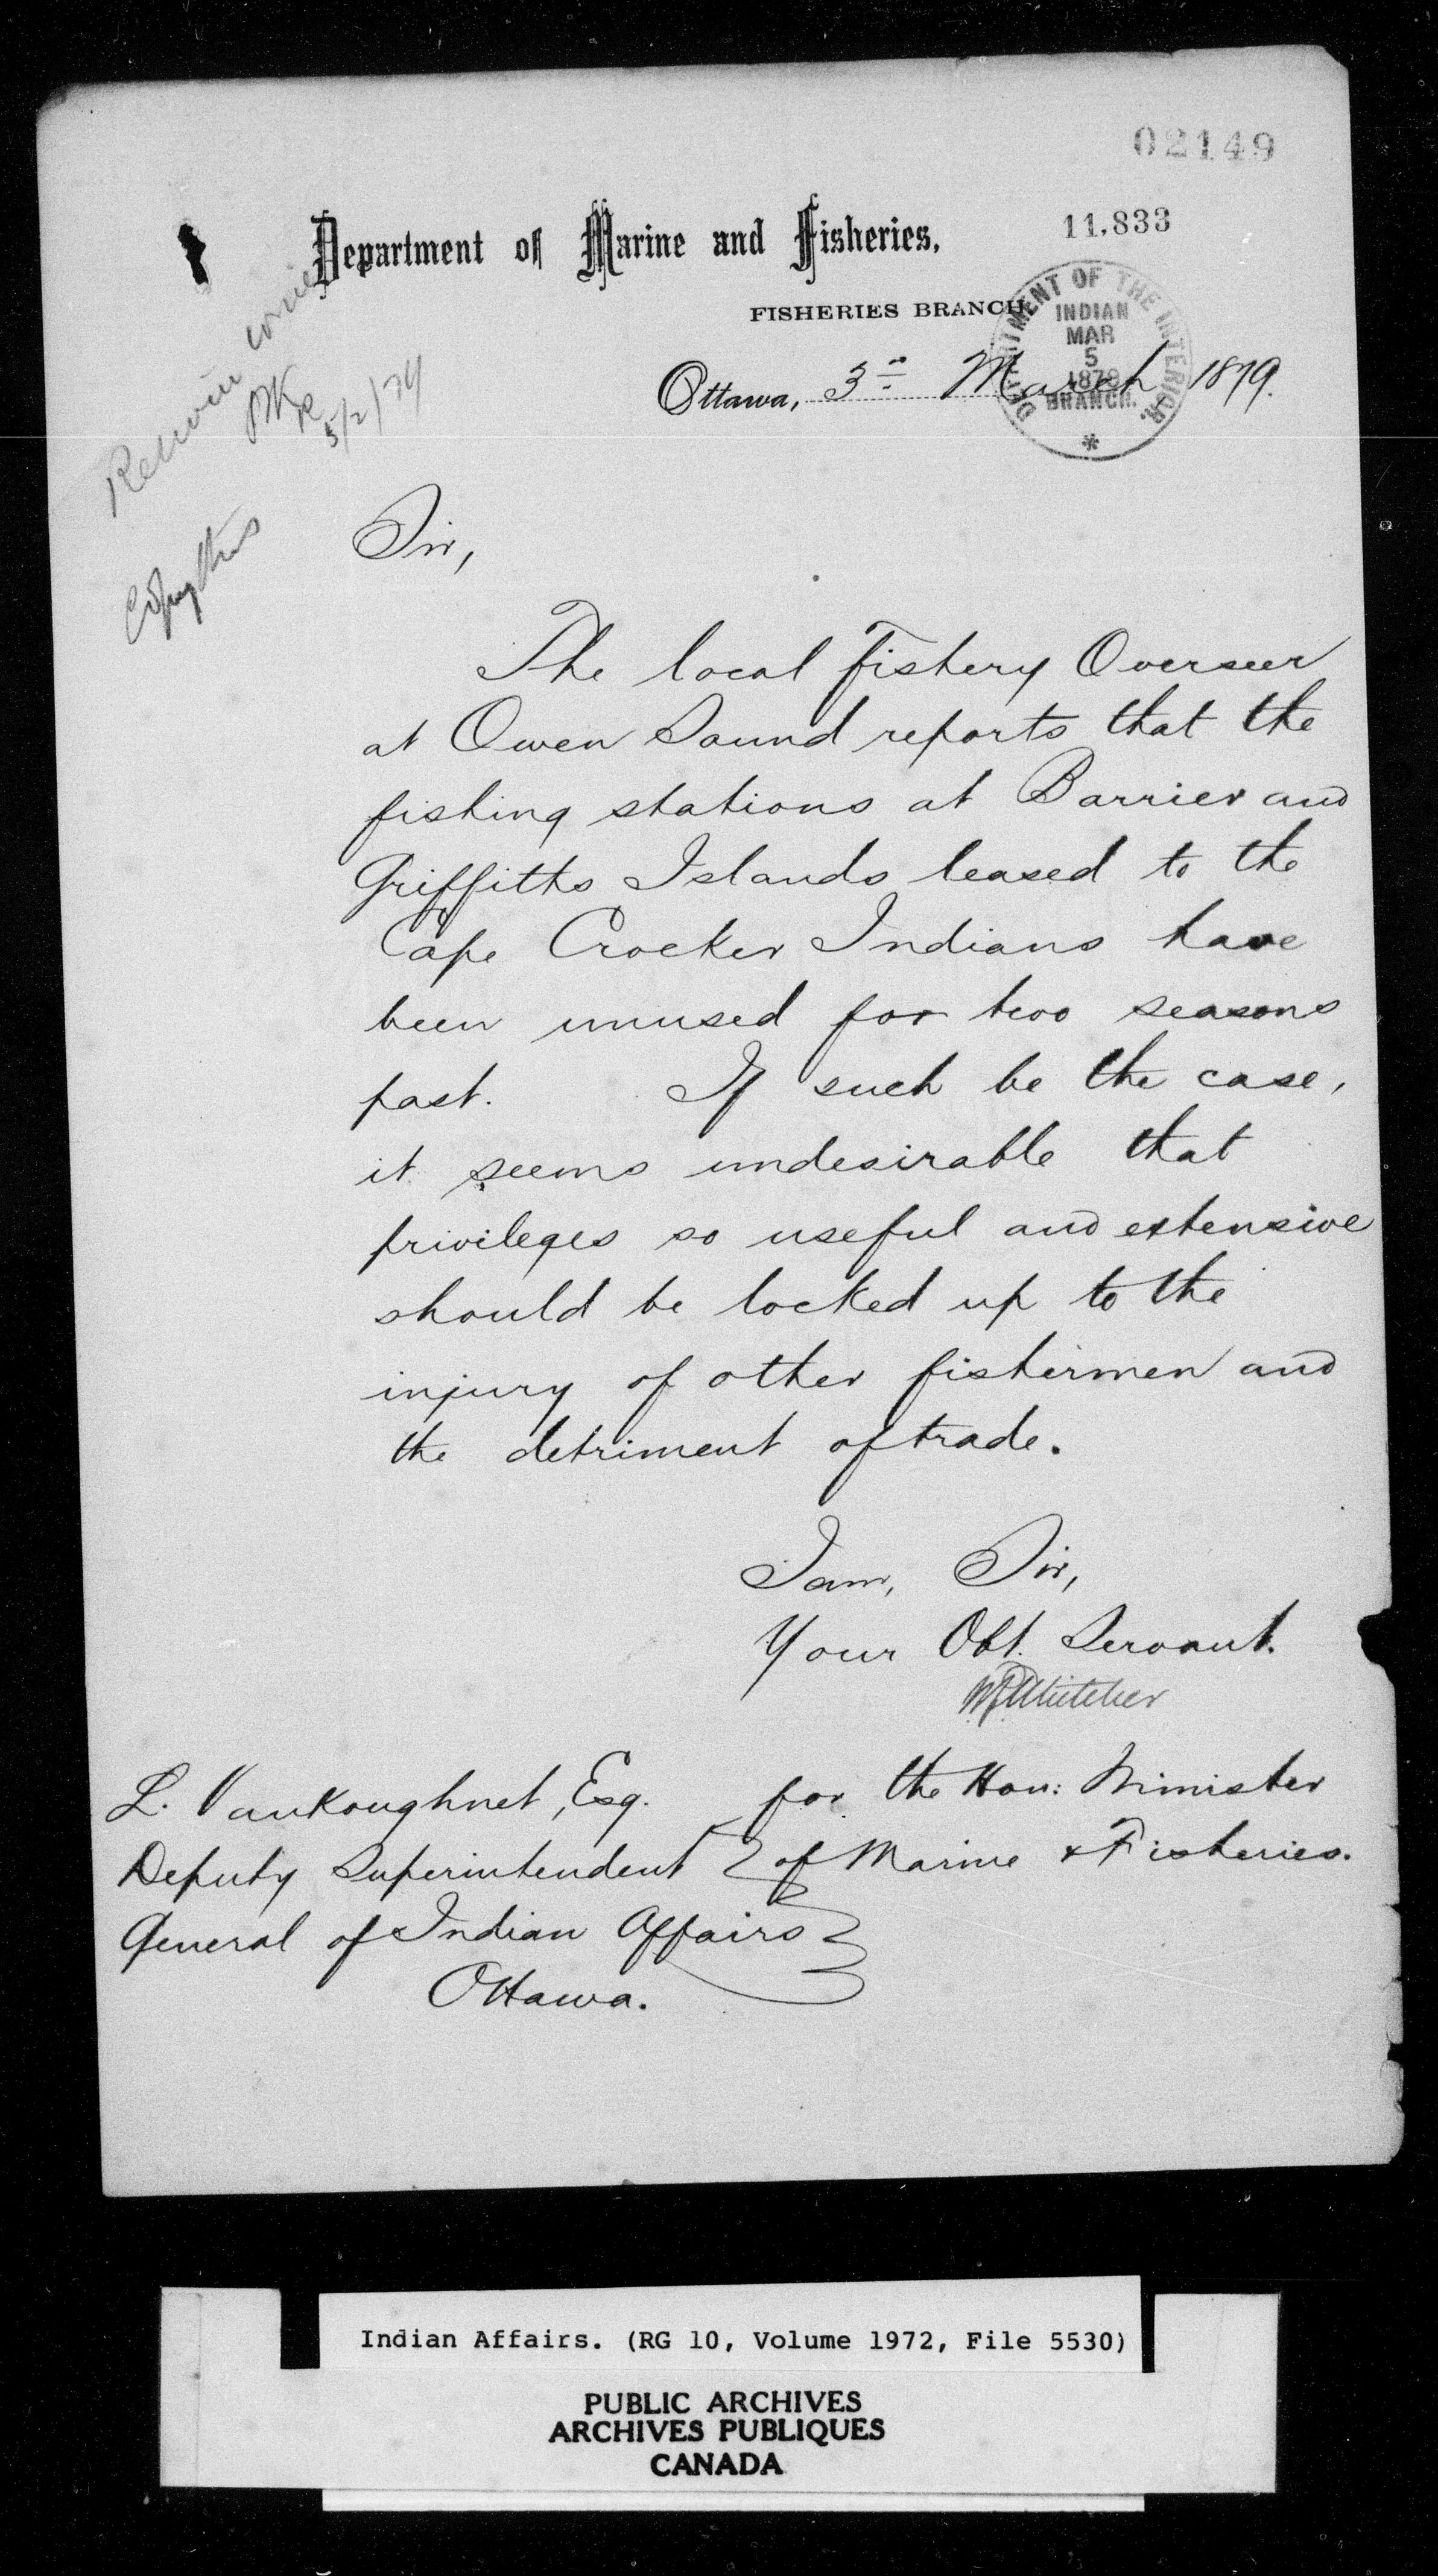 02149
11.833
Department of Marine and Fisheries,
FISHERIES BRANCH
DEPARTMENT OF THE INTERIOR.
INDIAN
MAR
5
1879
BRANCH.
*
Ottawa, 3rd March 1879.
5/2/79
Copy this
Sir,
The local Fishery Overseer
at Owen Sound reports that the
fishing stations at Barrier and
Griffiths Islands leased to the
Cape Crocker Indians have
been unused for two seasons
past. If such be the case,
it seems undesirable that
privileges so useful and extensive
should be locked up to the
injury of other fishermen and
the detriment of trade.
I am, Sir,
Your Obt. Servant.
W.F. Whitcher
for the Hon: Minister
of Marine & Fisheries.
L. Vankoughnet, Esq.
Deputy Superintendent
General of Indian Affairs
Ottawa.
Indian Affairs. (RG 10, Volume 1972, File 5530)
PUBLIC ARCHIVES
ARCHIVES PUBLIQUES
CANADA